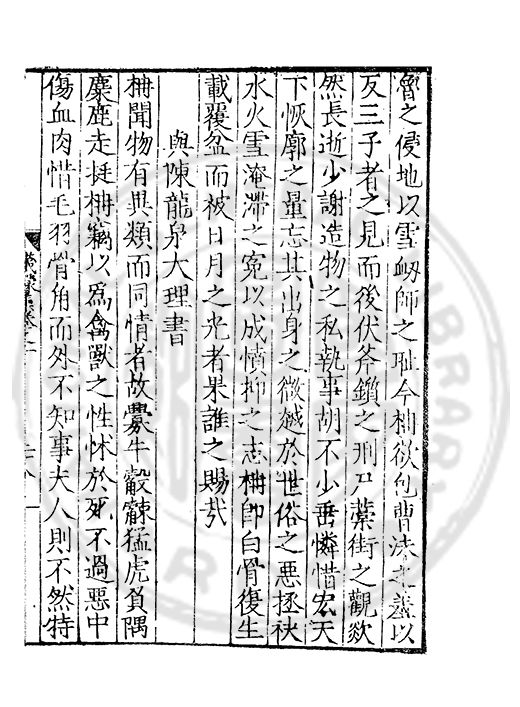 魯之侵地以雪衂師之耻今枏欲包曹沬之羞以
反三子者之見而後伏斧鑕之刑尸藁街之觀欻
然長逝少謝造物之私執事胡不少垂憐惜宏天
下恢廓之量忘其出身之微越於世俗之惡拯袂
水火雪淹滯之寃以成憤抑之志枏卽白骨復生
載覆盆而被日月之光者果誰之賜哉
與陳龍泉大理書
枏聞物有異類而同情者故釁牛觳觫猛虎負隅
麋鹿走挺枏竊以爲禽獸之性怵於死不過惡中
傷血肉惜毛羽骨角而外不知事夫人則不然特